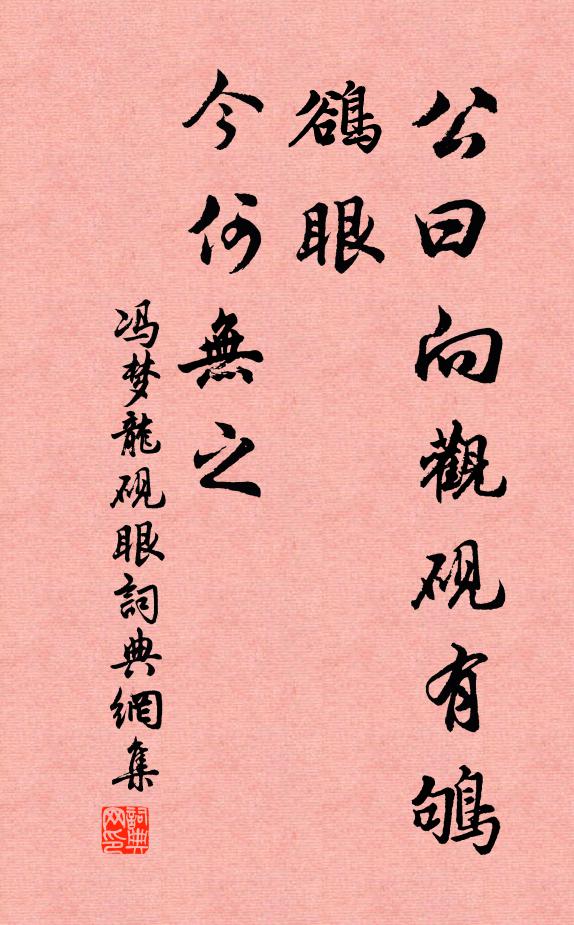 公曰向觀硯有鴝
鵒眼
今何無之
冯梦龍硯眼詞典網集
詞典网印